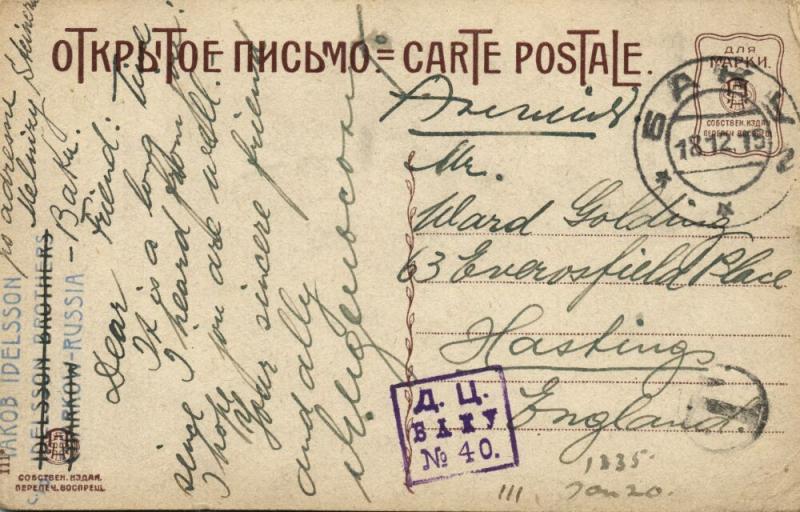 ОТКРЫТОЕ ПИСЬМО. = CARTE POSTALE.
ДЛЯ
МАРКИ.
СОБСТВЕН. ИЗДАН.
ПЕРЕПЕЧ. ВОСПРЕЩ.
БАКУ
18.12.15
Mr.
Ward Golding
63 Eversfield Place
Hastings
England.
Д. Ц.
БАКУ
№ 40.
1835.
Jan 20.
Dear Friend:
It is a long time
since I heard from
I hope you are well.
Your sincere friend
and ally
JAKOB IDELSSON
IDELSSON BROTHERS
CHARKOW-RUSSIA
Baku.
СОБСТВЕН. ИЗДАН.
ПЕРЕПЕЧ. ВОСПРЕЩ.